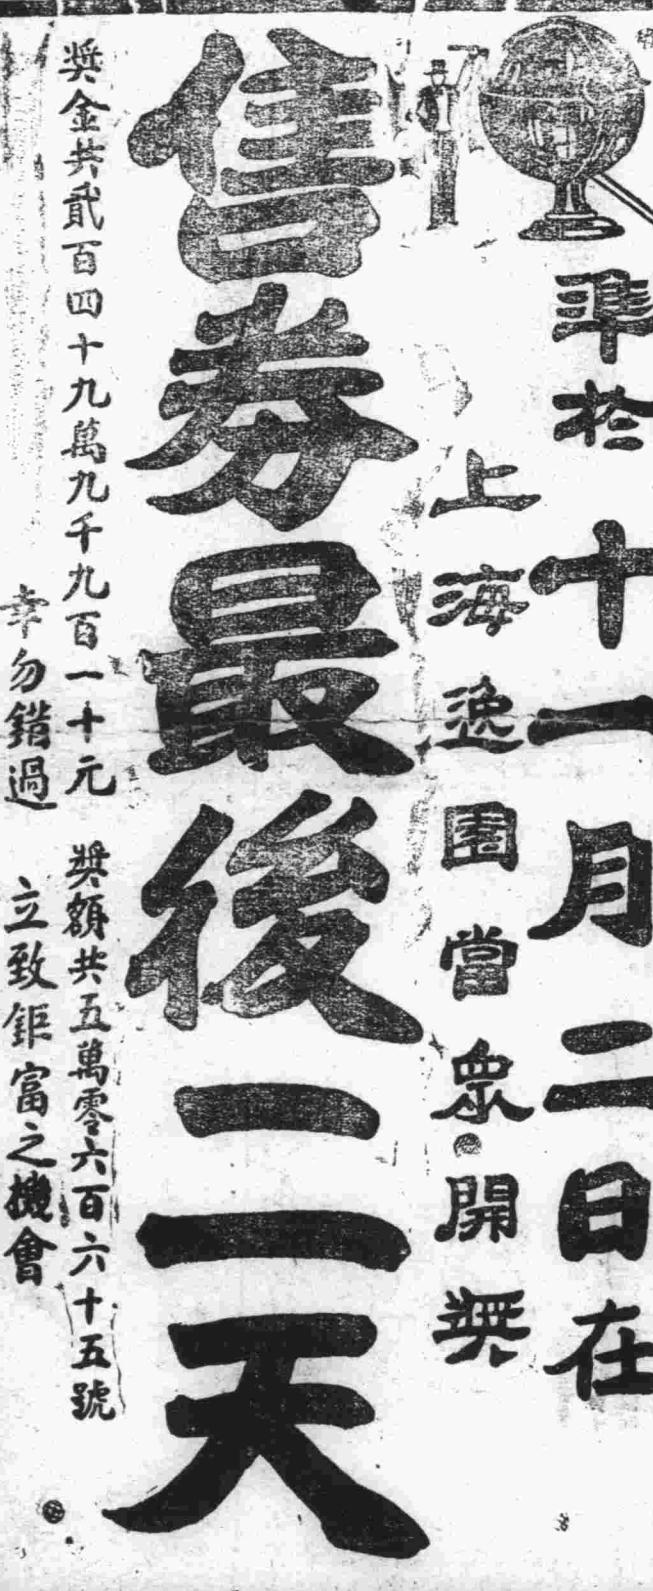 準於十一月二日在
上海逸園當眾開獎
售券最後二天
獎金共貳百四十九萬九千九百一十元 獎額共五萬零六百六十五號
幸勿錯過 立致鉅富之機會